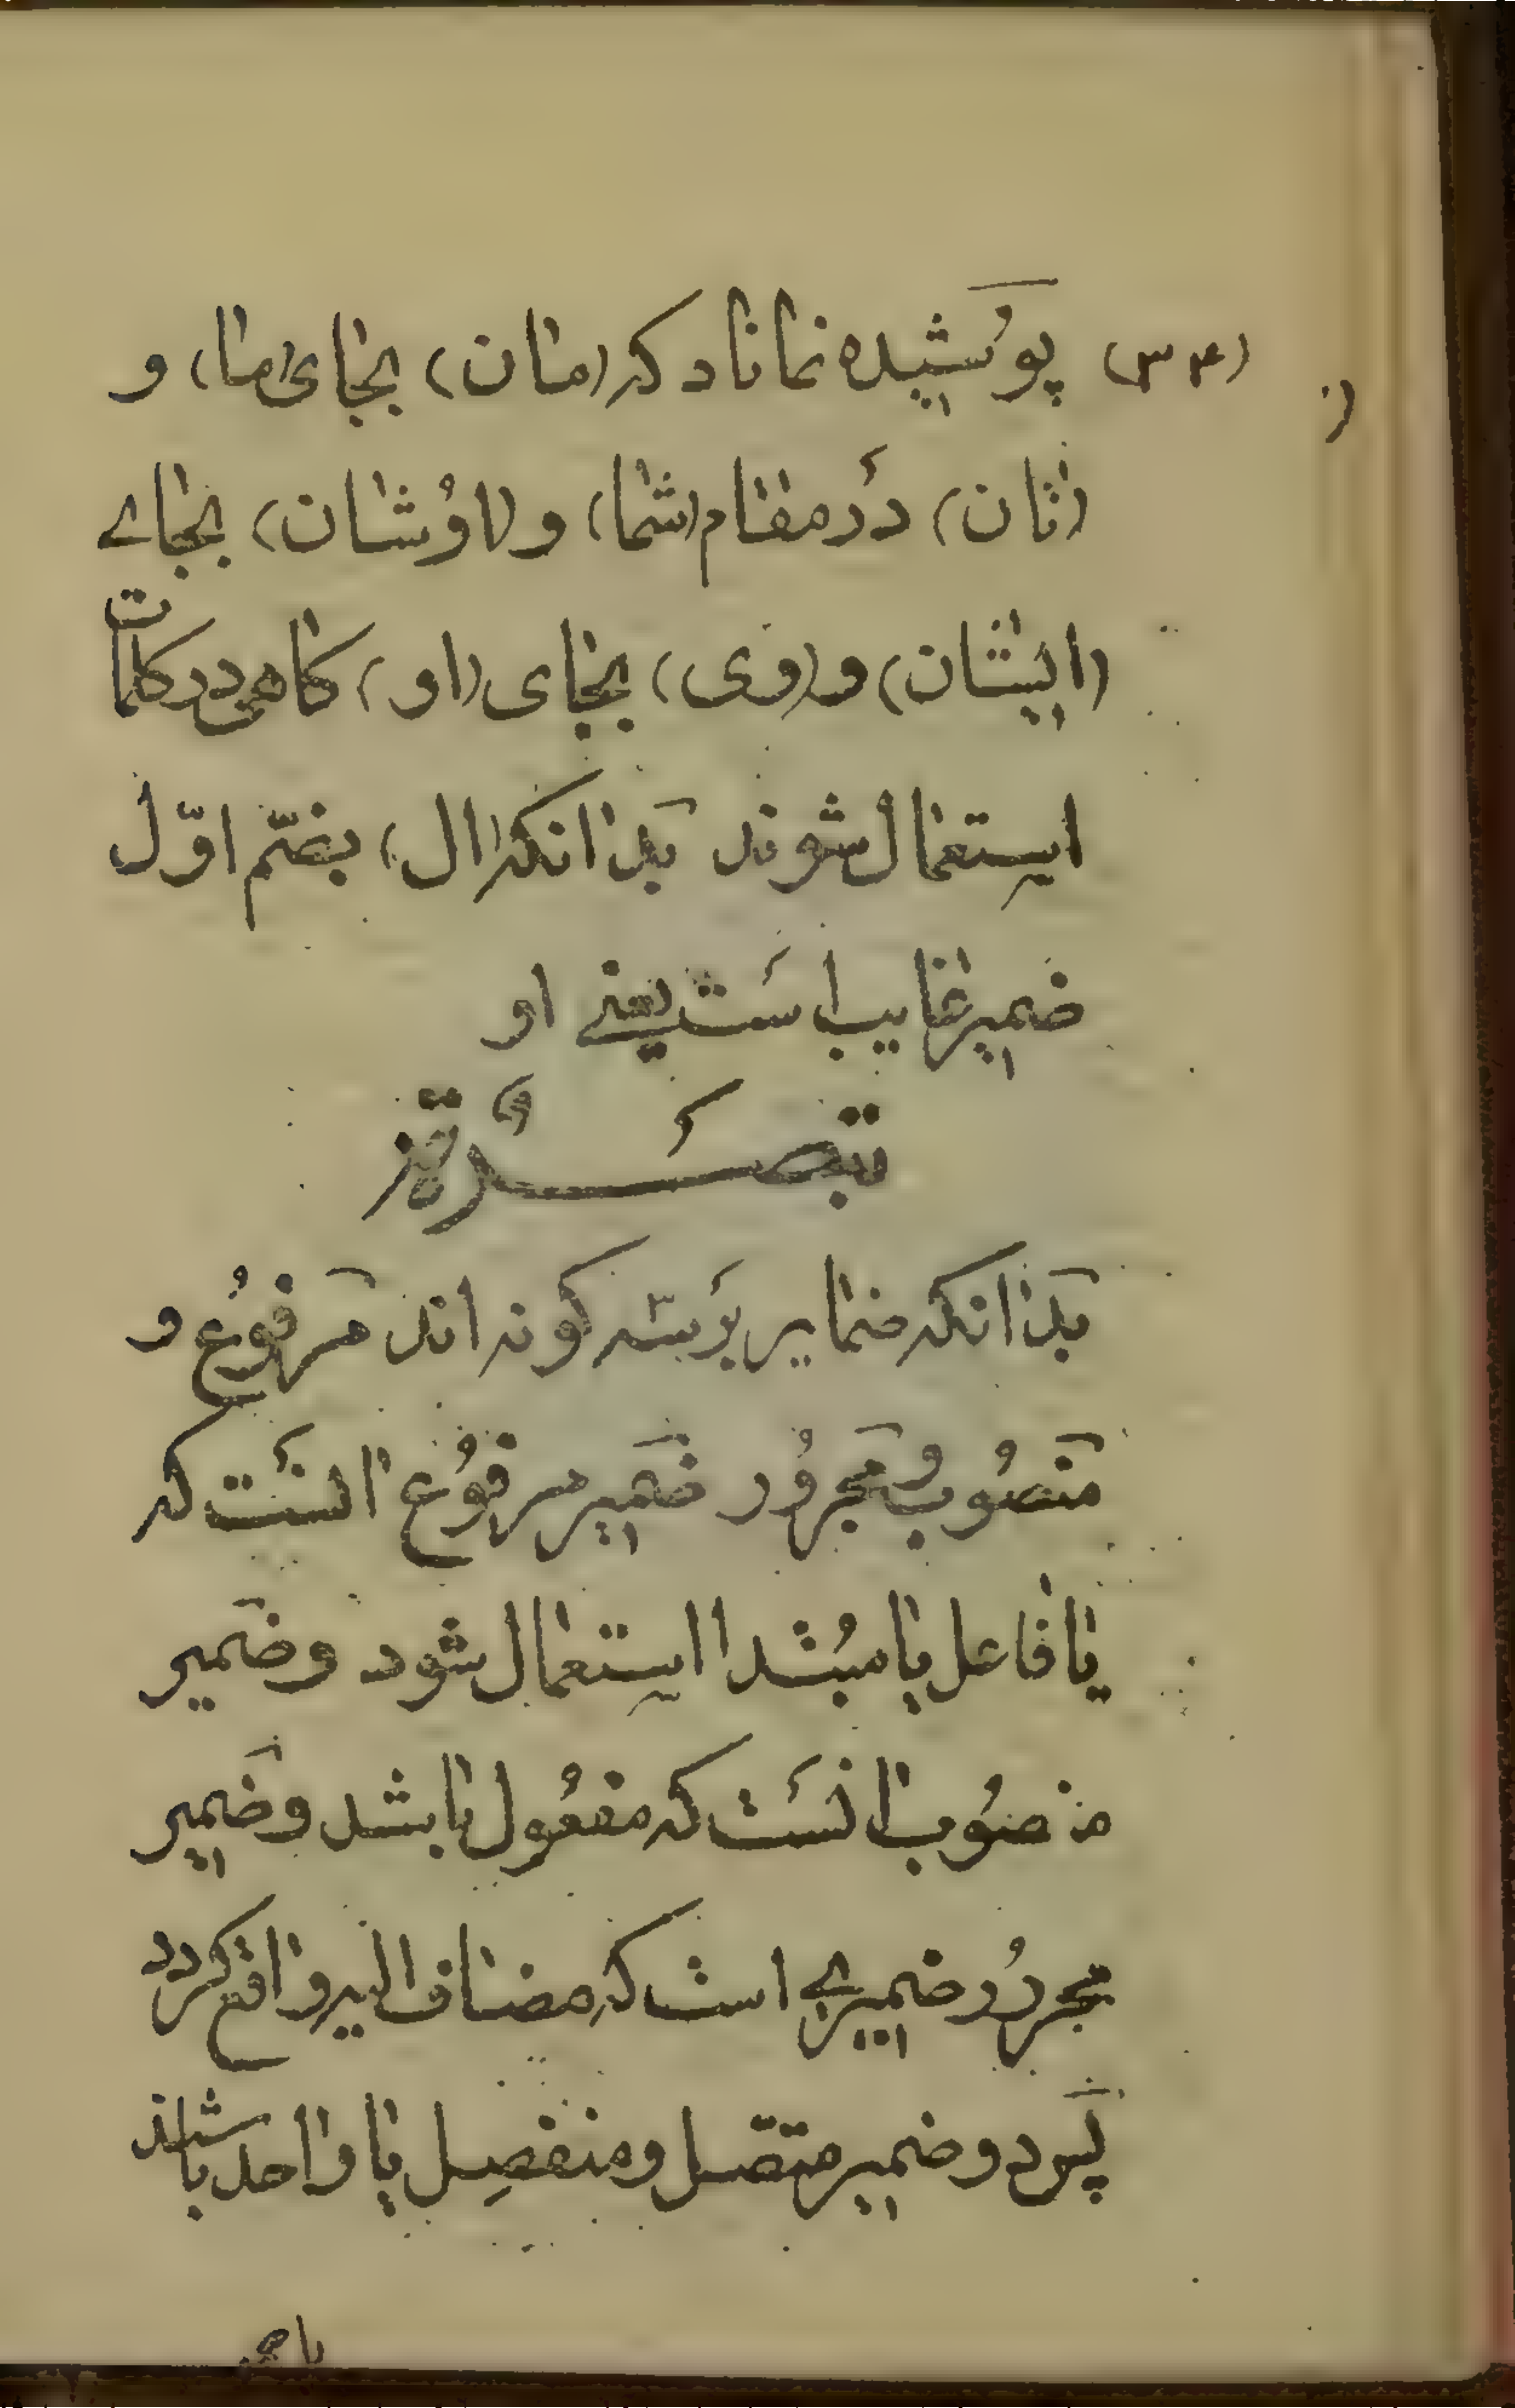 (۳۴) پوُشیده نماناد که (مان) بجای (ما) و
(تان) دَر مقام (شما) و (اوُشان) بجاے
(ایشان) و (وی) بجای (او) کاهی در کلمات
استعمال شوند بَدانکه (ال) بضّم اوّل
ضمیر غایب اسَت یعنے او
تبصَرَةٌ
بَدانکه ضمایر بَر سّه کونه اند مَرفوُع و
مَنصوُب و مَجروُر ضَمیر مرفوُع انسَت که
یا فاعل یا مبُتدا استعمال شود و ضَمیر
منصوُب انسَت که مفعوُل باشد و ضَمیر
مجروُر ضمیرے است که مضاف الیه واقع کردد
پَس دو ضمیر متصّل و منفصِل یا واحد باشند
یا جمع